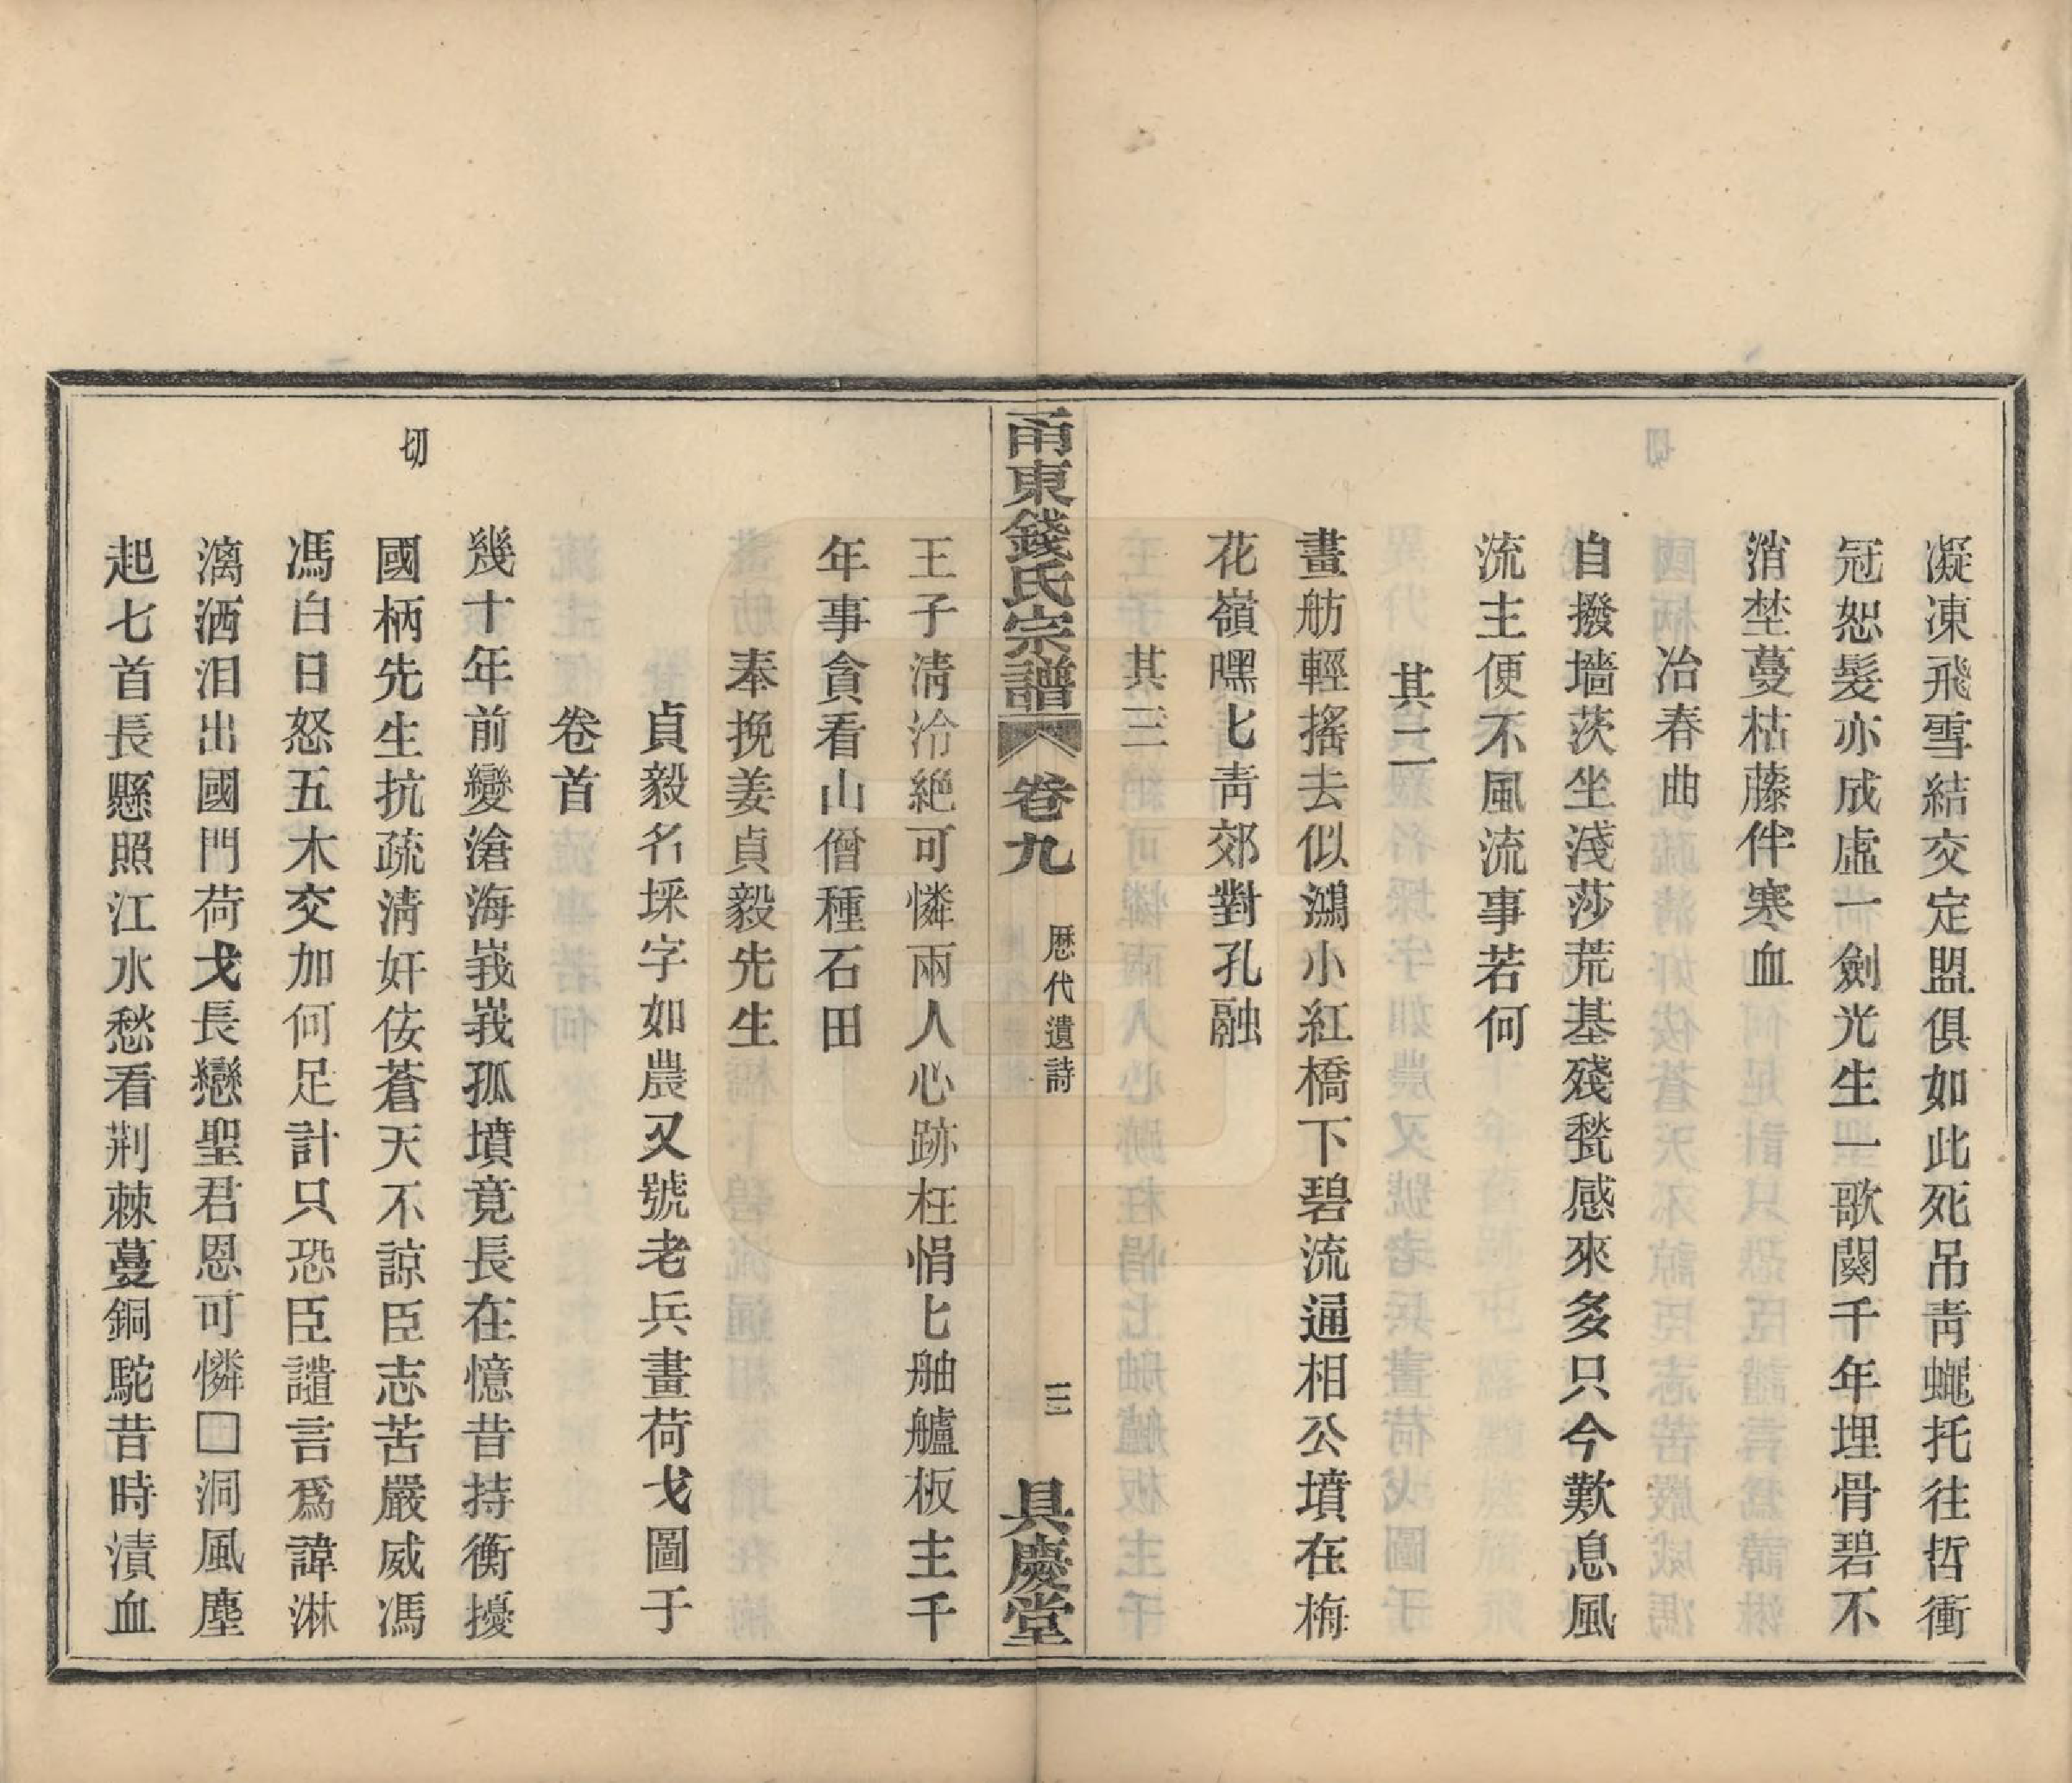 凝凍飛雪結交定盟俱如此死吊靑蠅托往哲衝
冠恕髮亦成虛一劍光生一歌闋千年埋骨碧不
消埜蔓枯藤伴寒血
冶春曲
自撥墻茨坐淺莎荒基殘甃感來多只今歎息風
流主便不風流事若何
其二
畫舫輕搖去似鴻小紅橋下碧流通相公墳在梅
花嶺嘿匕靑郊對孔融
其三
甬東錢氏宗譜
卷九
歷代遺詩
三
具慶堂
王子淸泠絶可憐兩人心跡枉悁匕舳艫板主千
年事貪看山僧種石田
奉挽姜貞毅先生
貞毅名埰字如農又號老兵畫荷戈圖于
卷首
幾十年前變滄海峩峩孤墳竟長在憶昔持衡擾
切
國柄先生抗疏淸奸佞蒼天不諒臣志苦嚴威馮
馮白日怒五木交加何足計只恐臣譴言爲諱淋
漓洒泪出國門荷戈長戀聖君恩可憐□洞風塵
起七首長懸照江水愁看荆棘蔓銅駝昔時漬血